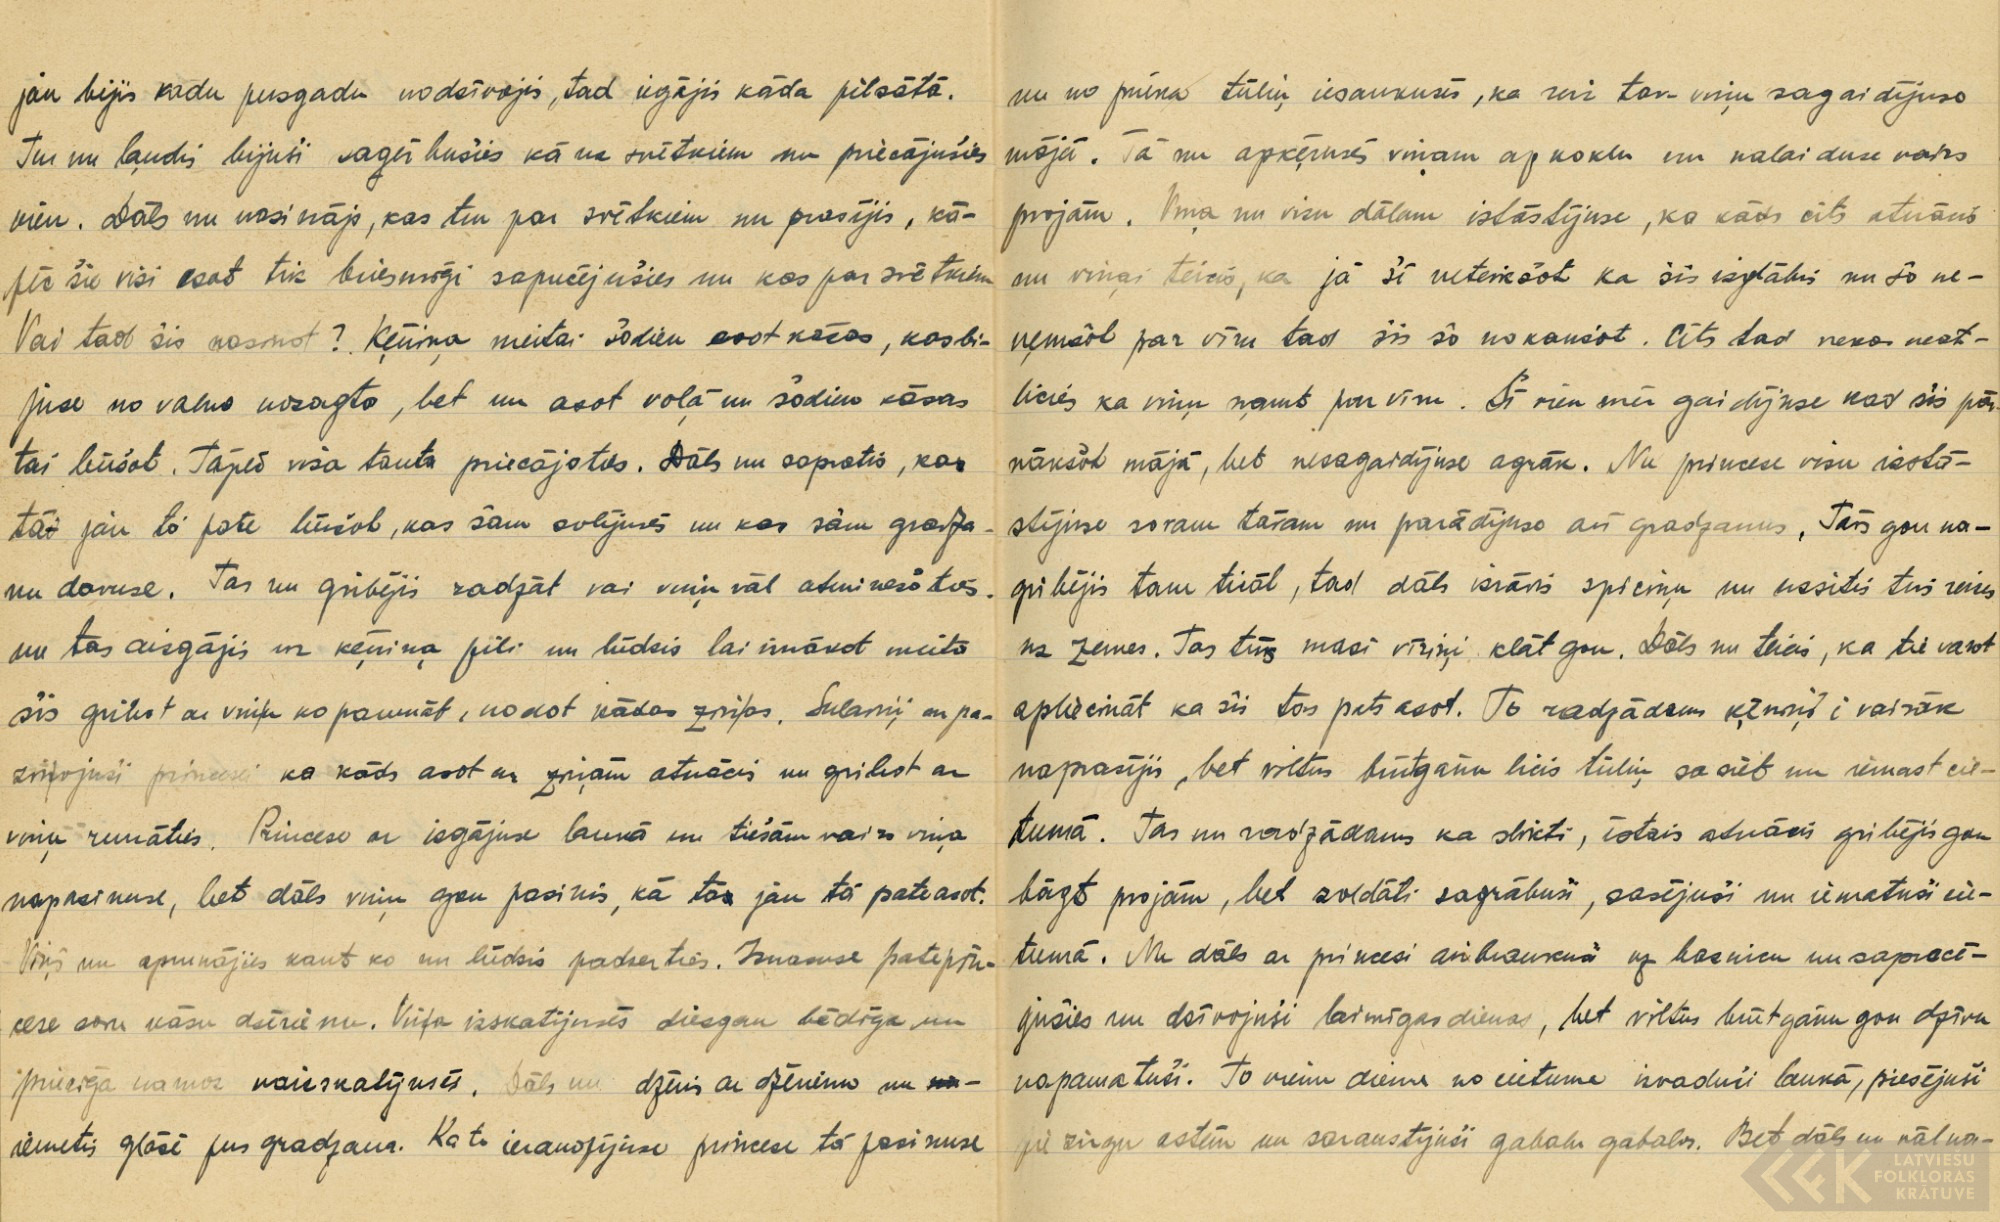 jau bijis kādu pusgadu nodzīvojis, tad iegājis kādā pilsātā.
Tur nu ļaudis bijuši saģērbušies kā uz svētkiem un priecājušies
vien. Dāls nu nosinājs, kas tur par svētkiem un prasījis, kā-
pēc šie visi esot tik briesmīgi sapucējušies un kas par svētkiem
Vai tad šis nasinot? Ķēniņa meitai šodien esot kāzas, kas bi-
juse no valna nozagta, bet nu asot vaļā un šodien kāzas
tai būšot. Tāpēc visa tauta priecājoties. Dāls nu sapratis, ka
tā jau tā pate būšot, kas šam solījusēs un kas šam gradza-
nu davuse. Tas nu gribējis radzāt vai viņu vāl atminēšoties.
nu tas aizgājis uz ķēniņa pili un lūdzis lai iznākot meita
šis gribot ar viņu kopā runāt, nodot kādas ziņas. Sulaiņi ar pa-
ziņojuši princesei ka kāds asot ar ziņām atnācis un gribot ar
viņu runāties. Princese ar izgājuse laukā un tiešām vairs viņa
napazinuse, bet dāls viņu gan pazinis, kā tā jau tā pate asot.
Viņš nu aprunājies kaut ko un lūdzis padzerties. Iznasuse pate prin-
cese savu kāzu dzērienu. Viņa izskatījusēs diezgan bēdīga un
priecīga namaz naizskatījusēs. Dāls nu dzēris ar dzērienu un
iemetis glāzē pus gradzana. Ka to ieraudzījuse princese tā pazinuse
nu no prieka tūliņ iesaukusēs, ka nu tav viņu sagaidījuse
mājā. Tā nu apķērusēs viņam ap kaklu un nalaiduse vairs
projām. Viņa nu visu dālam istāstījuse, ka kāds cits atnācis
nu viņai teicis, ka jā šī neteikšot ka šis izglābis nu šo ne-
ņemšot par vīru tad šis šo nokaušot. Cits tad nekas neat-
licies ka viņu ņamt par vīru. Šī vien mēr gaidījuse kad šis pār-
nākšot mājā, bet nesagaidījuse agrāk. Nu princese visu izstā-
stījuse savam tāvam un parādījuse arī gradzanus. Tāvs gan na-
gribējis tam ticāt, tad dāls izrāvis spieķiņu un uzsitis trīs reizes
uz zemes. Tas trīs mazi vīriņi klāt gan. Dāls nu teicis, ka tie varot
apliecināt ka šis tas pats asot. To radzādams ķēniņš i vairāk
naprasījis, bet viltus brūtgānu licis tūliņ sasiet un iemast cie-
tumā. Tas nu radzādams ka slikti, īstais atnācis gribējis gan
bāgt projām, bet zoldāti sagrābuši, sasējuši un iematuši cie-
tumā. Nu dāls ar princesi aizbraukuši uz baznicu un saprecē-
jušies un dzīvojuši laimīgas dienas, bet viltus brūtgānu gan dzīvu
napamatuši. To vienu dienu no cietuma izvaduši laukā, piesējuši
pie zirgu astēm un saraustījuši gabalu gabalos. Bet dāls nu vāl na-
LATVIEŠU
FOLKLORAS
KRĀTUVE